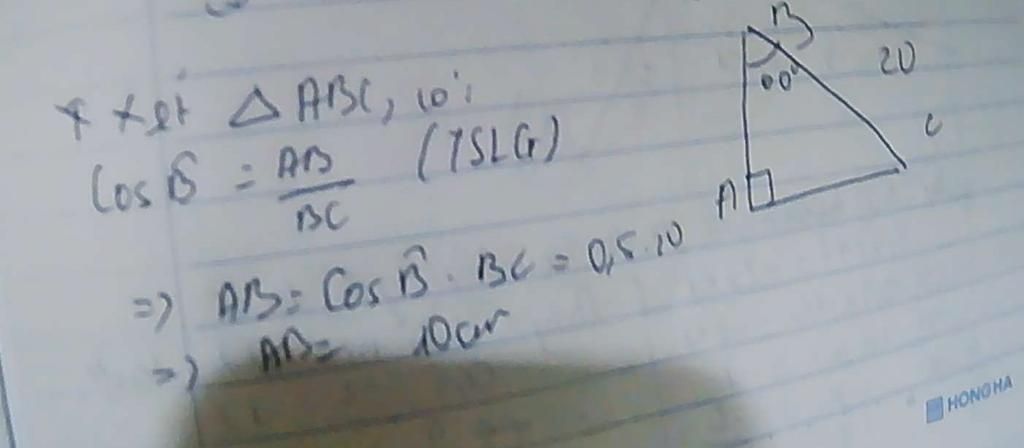 * Xét Δ ABC, có:
Cos B̂ = AB/BC (TSLG)
=> AB = Cos B̂ . BC = 0,5.20
=> AB = 10cm
B
60°
20
C
A
HONG HA